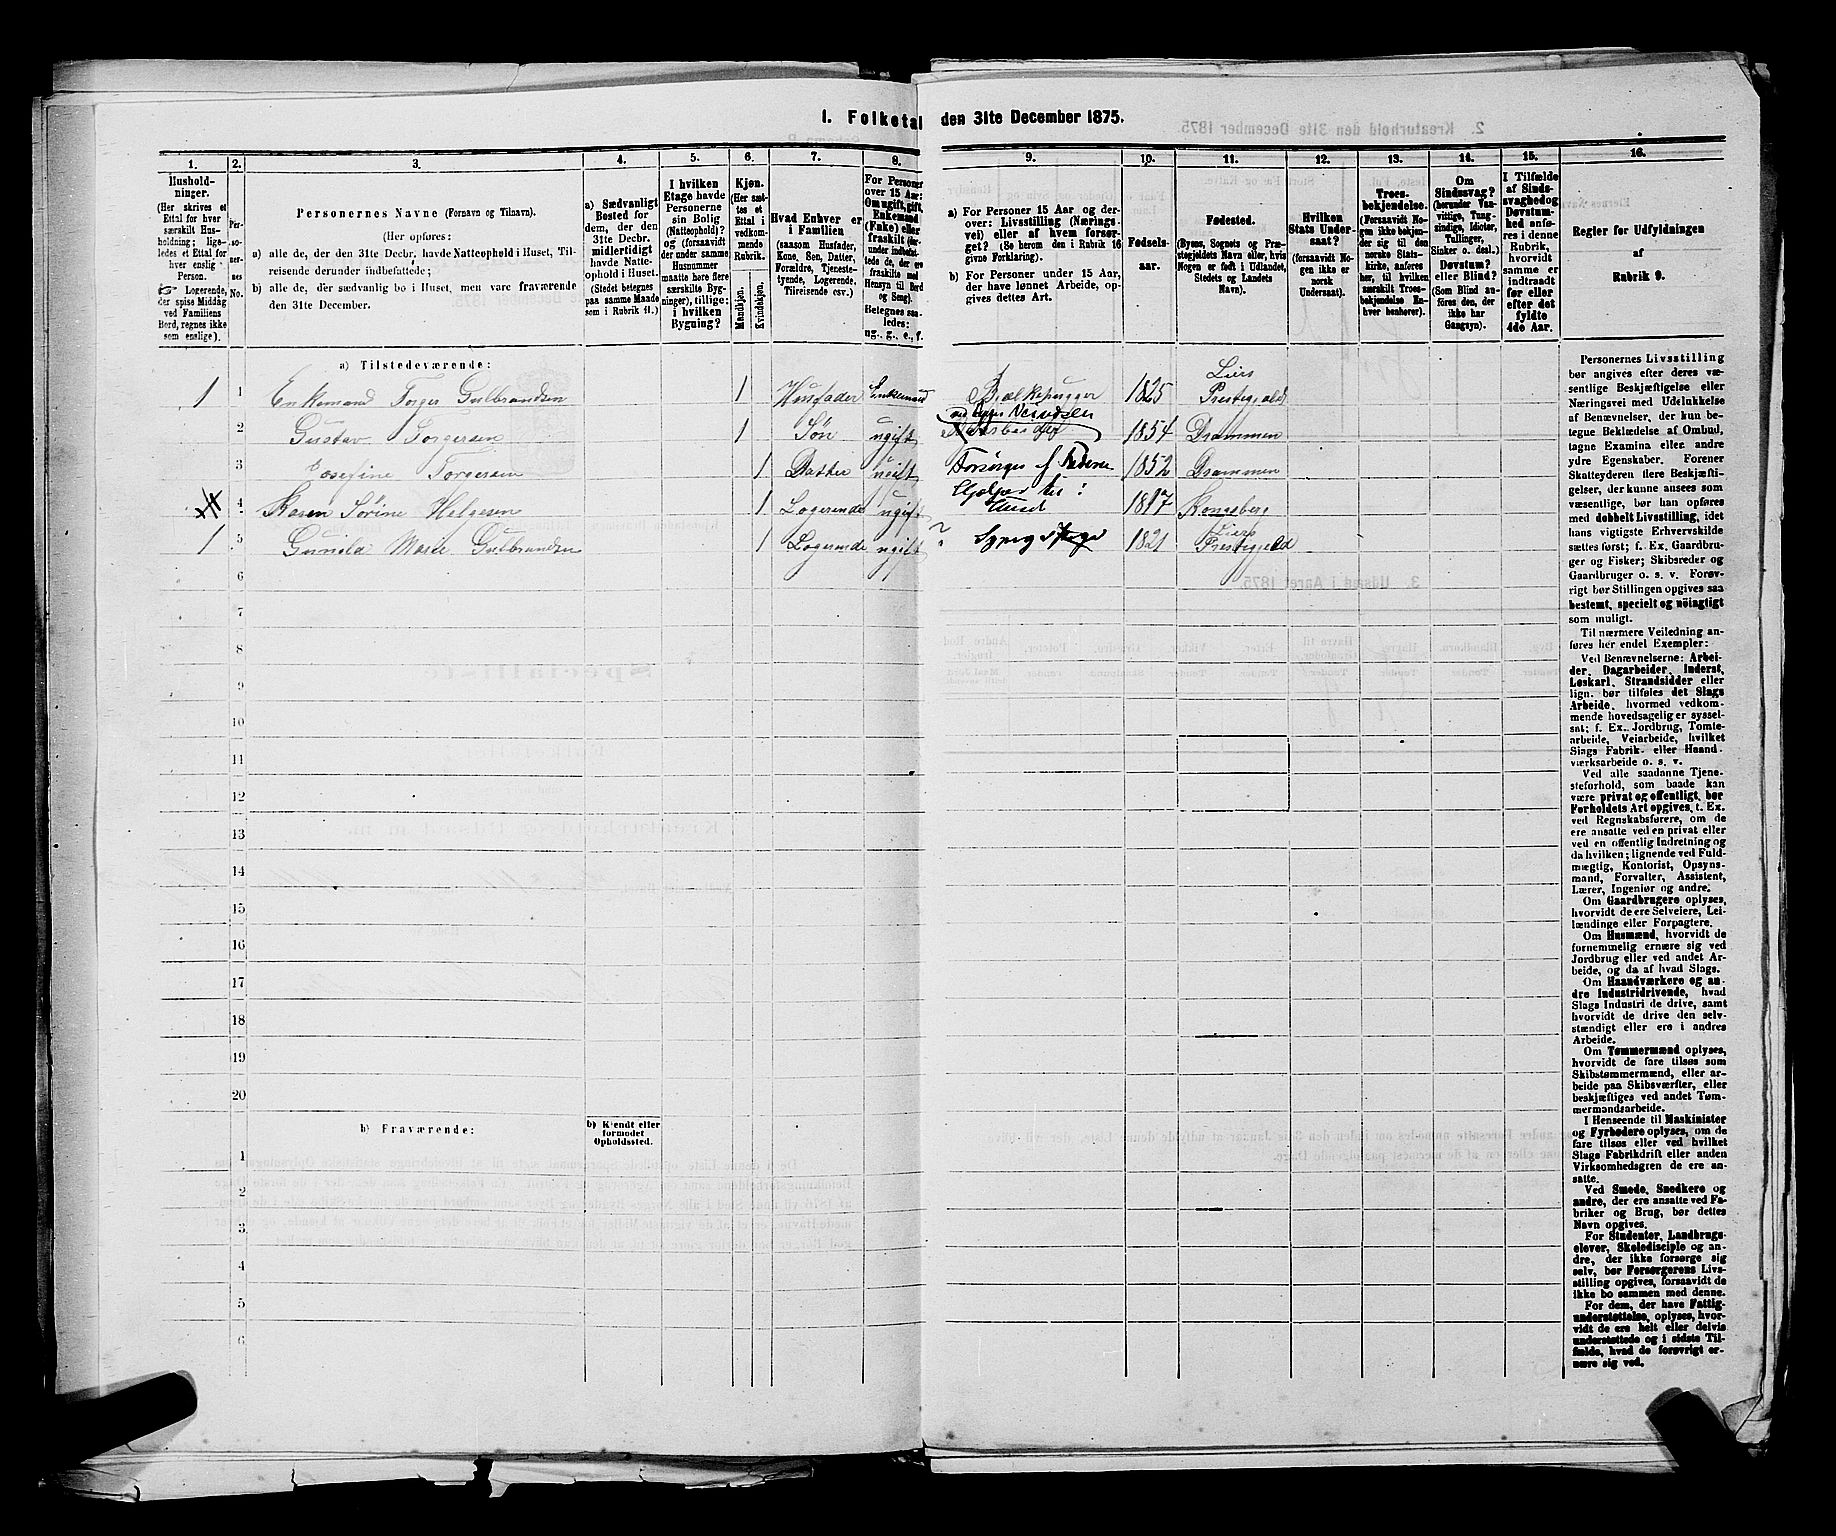 1. Folketal den 31te December 1875.
1. 2. 3. 4. 5. 6. 7. 8. 9. 10. 11. 12. 13. 14. 15. 16.
Hushold-
ninger.
(Her skrives et
Ettal for hver
særskilt Hus-
holdning; lige-
ledes et Ettal for
hver enslig
Person.
Logerende,
der spise Middag
ved Familiens
Bord, regnes ikke
som enslige).
Per-
so-
ner-
nes
No.
Personernes Navne (Fornavn og Tilnavn).
(Her opføres:
a) alle de, der den 31te Decbr. havde Natteophold i Huset, Til-
reisende derunder indbefattede;
b) alle de, der sædvanlig bo i Huset, men vare fraværende
den 31te December.
a) Sædvanligt
Bosted for
dem, der den
31te Decbr.
midlertidigt
havde Natte-
ophold i Huset.
(Stedet betegnes
paa samme Maade
som i Rubrik 11.)
I hvilken
Etage havde
Personerne
sin Bolig
(Natteophold)?
og (forsaavidt
der under samme
Husnummer
maatte høre flere
særskilte Byg-
ninger), tillige:
i hvilken
Bygning?
Kjøn.
(Her sæt-
tes et
Ettal i
vedkom-
mende
Rubrik.
Mandkjøn.
Kvindekjøn.
Hvad Enhver er
i Familien
(saasom Husfader,
Kone, Søn, Datter,
Forældre, Tjeneste-
tyende, Logerende,
Tilreisende osv.)
For Personer
over 15 Aar:
Om ugift, gift,
Enkemand
(Enke) eller
fraskilt
Betegnes saa-
ledes:
ug., g., e., f.
a) For Personer 15 Aar og der-
over: Livsstilling (Nærings-
vei) eller af hvem forsør-
get? (Se herom den i Rubrik 16
givne Forklaring).
b) For Personer under 15 Aar,
der have lønnet Arbeide, op-
gives dettes Art.
Fødsels-
aar.
Fødested.
(Byens, Sognets og Præ-
stegjeldets Navn eller, hvis
Nogen er født i Udlandet,
Stedets og Landets
Navn).
Hvilken
Stats Under-
saat?
(forsaavidt No-
gen ikke er
norsk
Undersaat).
Troes-
bekjendelse.
(Forsaavidt No-
gen ikke bekjen-
der sig til den
norske Stats-
kirke, anføres
her, til hvilken
særskilt Troes-
bekjendelse En-
hver henhører).
Om
Sindssvag?
(herunder Van-
vittige, Tung-
sindige, Idioter,
Tullinger,
Sinker o. desl.).
Døvstum?
eller Blind?
(Som Blind an-
føres den, der
ikke har
Gangsyn).
I Tilfælde
af Sinds-
svaghed og
Døvstum-
hed anfø-
res i denne
Rubrik,
hvorvidt
samme er
indtraadt
før eller
efter det
fyldte
4de Aar.
Regler for Udfyldningen
af
Rubrik 9.
a) Tilstedeværende:
1 1 Enkemand Torger Gulbrandsen 1 Husfader Enkemand 1825 Liers Prestegjeld
2 Gustav Torgersen 1 Søn ugift Arbeider 1854 Drammen
3 Josefine Torgersen 1 Datter ugift Forsørges af Faderen 1852 Drammen
4 Karen Sørine Helgesen 1 Logerende ugift Hjelper til i Huset 1817 Kongsberg
1 5 Gunild Marie Gulbrandsen 1 Logerende ugift ? 1821 Liers Prestegjeld
6
7
8
9
10
11
12
13
14
15
16
17
18
19
20
b) Fraværende:
b) Kjendt eller
formodet
Opholdssted.
1
2
3
4
5
6
Personernes Livsstilling
bør angives efter deres væ-
sentlige Beskjæftigelse eller
Næringsvei med Udelukkelse
af Benævnelser, der kun be-
tegne Beklædelse af Ombud,
tagne Examina eller andre
ydre Egenskaber. Forener
Skatteyderen flere Beskjæfti-
gelser, der kunne ansees som
væsentlige, bør han opføres
med dobbelt Livsstilling, idet
hans vigtigste Erhvervskilde
sættes først; f. Ex. Gaardbru-
ger og Fisker; Skibsreder og
Gaardbruger o. s. v. Forøv-
rigt bør Stillingen opgives saa
bestemt, specielt og nøiagtigt
som muligt.
Til nærmere Veiledning an-
føres her endel Exempler:
Ved Benævnelserne: Arbei-
der, Dagarbeider, Inderst,
Løskarl, Strandsidder eller
lign. bør tilføies det Slags
Arbeide, hvormed vedkom-
mende hovedsagelig er syssel-
sat; f. Ex. Jordbrug, Tomte-
arbeide, Veiarbeide, hvilket
Slags Fabrik- eller Haand-
værksarbeide o. s. v.
Ved alle saadanne Tjene-
steforhold, som baade kan
være privat og offentligt, bør
Forholdets Art opgives, t. Ex.
ved Regnskabsførere, om de
ere ansatte ved en privat eller
ved en offentlig Indretning og
da hvilken; lignende ved Fuld-
mægtig, Kontorist, Opsyns-
mand, Forvalter, Assistent,
Lærer, Ingeniør og andre.
Om Gaardbrugere oplyses,
hvorvidt de ere Selveiere, Lei-
lændinge eller Forpagtere.
Om Husmænd, hvorvidt de
fornemmelig ernære sig ved
Jordbrug eller ved andet Ar-
beide, og da af hvad Slags.
Om Haandværkere og an-
dre Industridrivende, hvad
Slags Industri de drive, samt
hvorvidt de drive den selv-
stændigt eller ere i andres
Arbeide.
Om Tømmermænd oplyses,
hvorvidt de fare tilsøs som
Skibstømmermænd, eller ar-
beide paa Skibsværfter, eller
beskjæftiges ved andet Tøm-
mermandsarbeide.
I Henseende til Maskinister
og Fyrbødere oplyses, om de
fare tilsøs eller ved hvilket
Slags Fabrikdrift eller anden
Virksomhedsgren de ere an-
satte.
Ved Smede, Snedkere og
andre, der ere ansatte ved Fa-
briker og Brug, bør dettes
Navn opgives.
For Studenter, Landbrugs-
elever, Skoledisciple og an-
dre, der ikke forsørge sig
selv, bør Forsørgerens Livs-
stilling opgives, forsaavidt de
ikke bo sammen med denne.
For dem, der have Fattig-
understøttelse, oplyses, hvor-
vidt de ere helt eller delvis
understøttede og i sidste Til-
fælde, hvad de forøvrigt er-
nære sig ved.